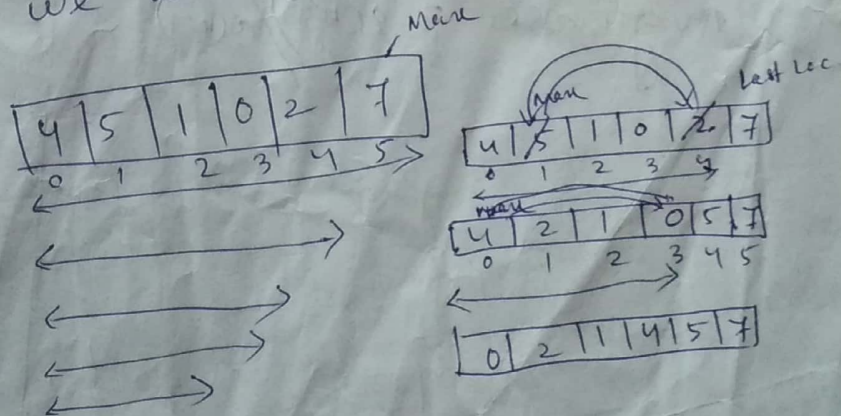 we
Max
4 5 1 0 2 7
0 1 2 3 4 5
max Last Loc
4 5 1 0 2 7
0 1 2 3 4
max
4 2 1 0 5 7
0 1 2 3 4 5
0 2 1 4 5 7